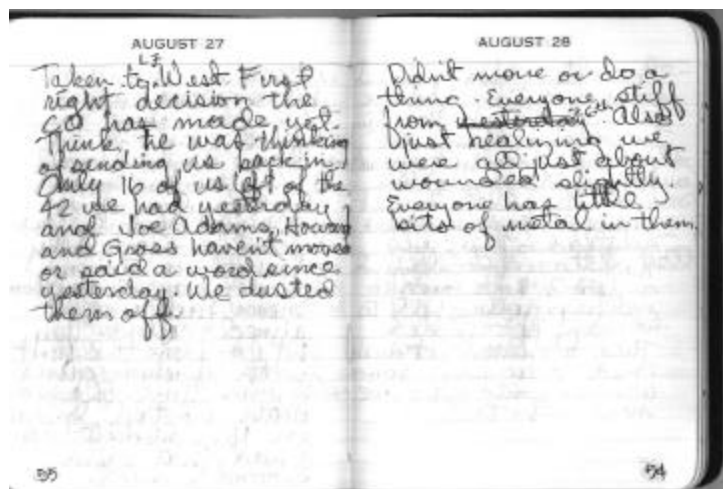 AUGUST 27
LZ
Taken to West. First
right decision the
CO has made yet.
Think he was thinking
of sending us back in.
Only 16 of us left of the
42 we had yesterday
and Joe Adams, Howard
and Gross haven't moved
or said a word since
yesterday. We dusted
them off
55
AUGUST 28
Didn't move or do a
thing. Everyone stiff
from yesterday 26th. Also
just realizing we
were all just about
wounded slightly.
Everyone has little
bits of metal in them.
54